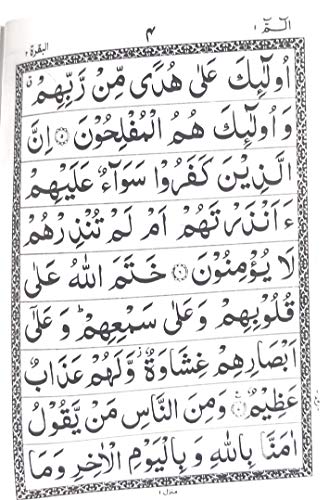 البقرة ٢ ٤ الٓمّٓ ١
اُولٰٓئِكَ عَلٰى هُدًى مِّنْ رَّبِّهِمْ ۙ
وَ اُولٰٓئِكَ هُمُ الْمُفْلِحُوْنَ ۝۵ اِنَّ
الَّذِيْنَ كَفَرُوْا سَوَآءٌ عَلَيْهِمْ
ءَاَنْذَرْتَهُمْ اَمْ لَمْ تُنْذِرْهُمْ
لَا يُؤْمِنُوْنَ ۝۶ خَتَمَ اللّٰهُ عَلٰى
قُلُوْبِهِمْ وَ عَلٰى سَمْعِهِمْ ؕ وَ عَلٰٓى
اَبْصَارِهِمْ غِشَاوَةٌ ؗ وَّ لَهُمْ عَذَابٌ
عَظِيْمٌ ۝۷ وَ مِنَ النَّاسِ مَنْ يَّقُوْلُ
اٰمَنَّا بِاللّٰهِ وَ بِالْيَوْمِ الْاٰخِرِ وَ مَا
منزل ١